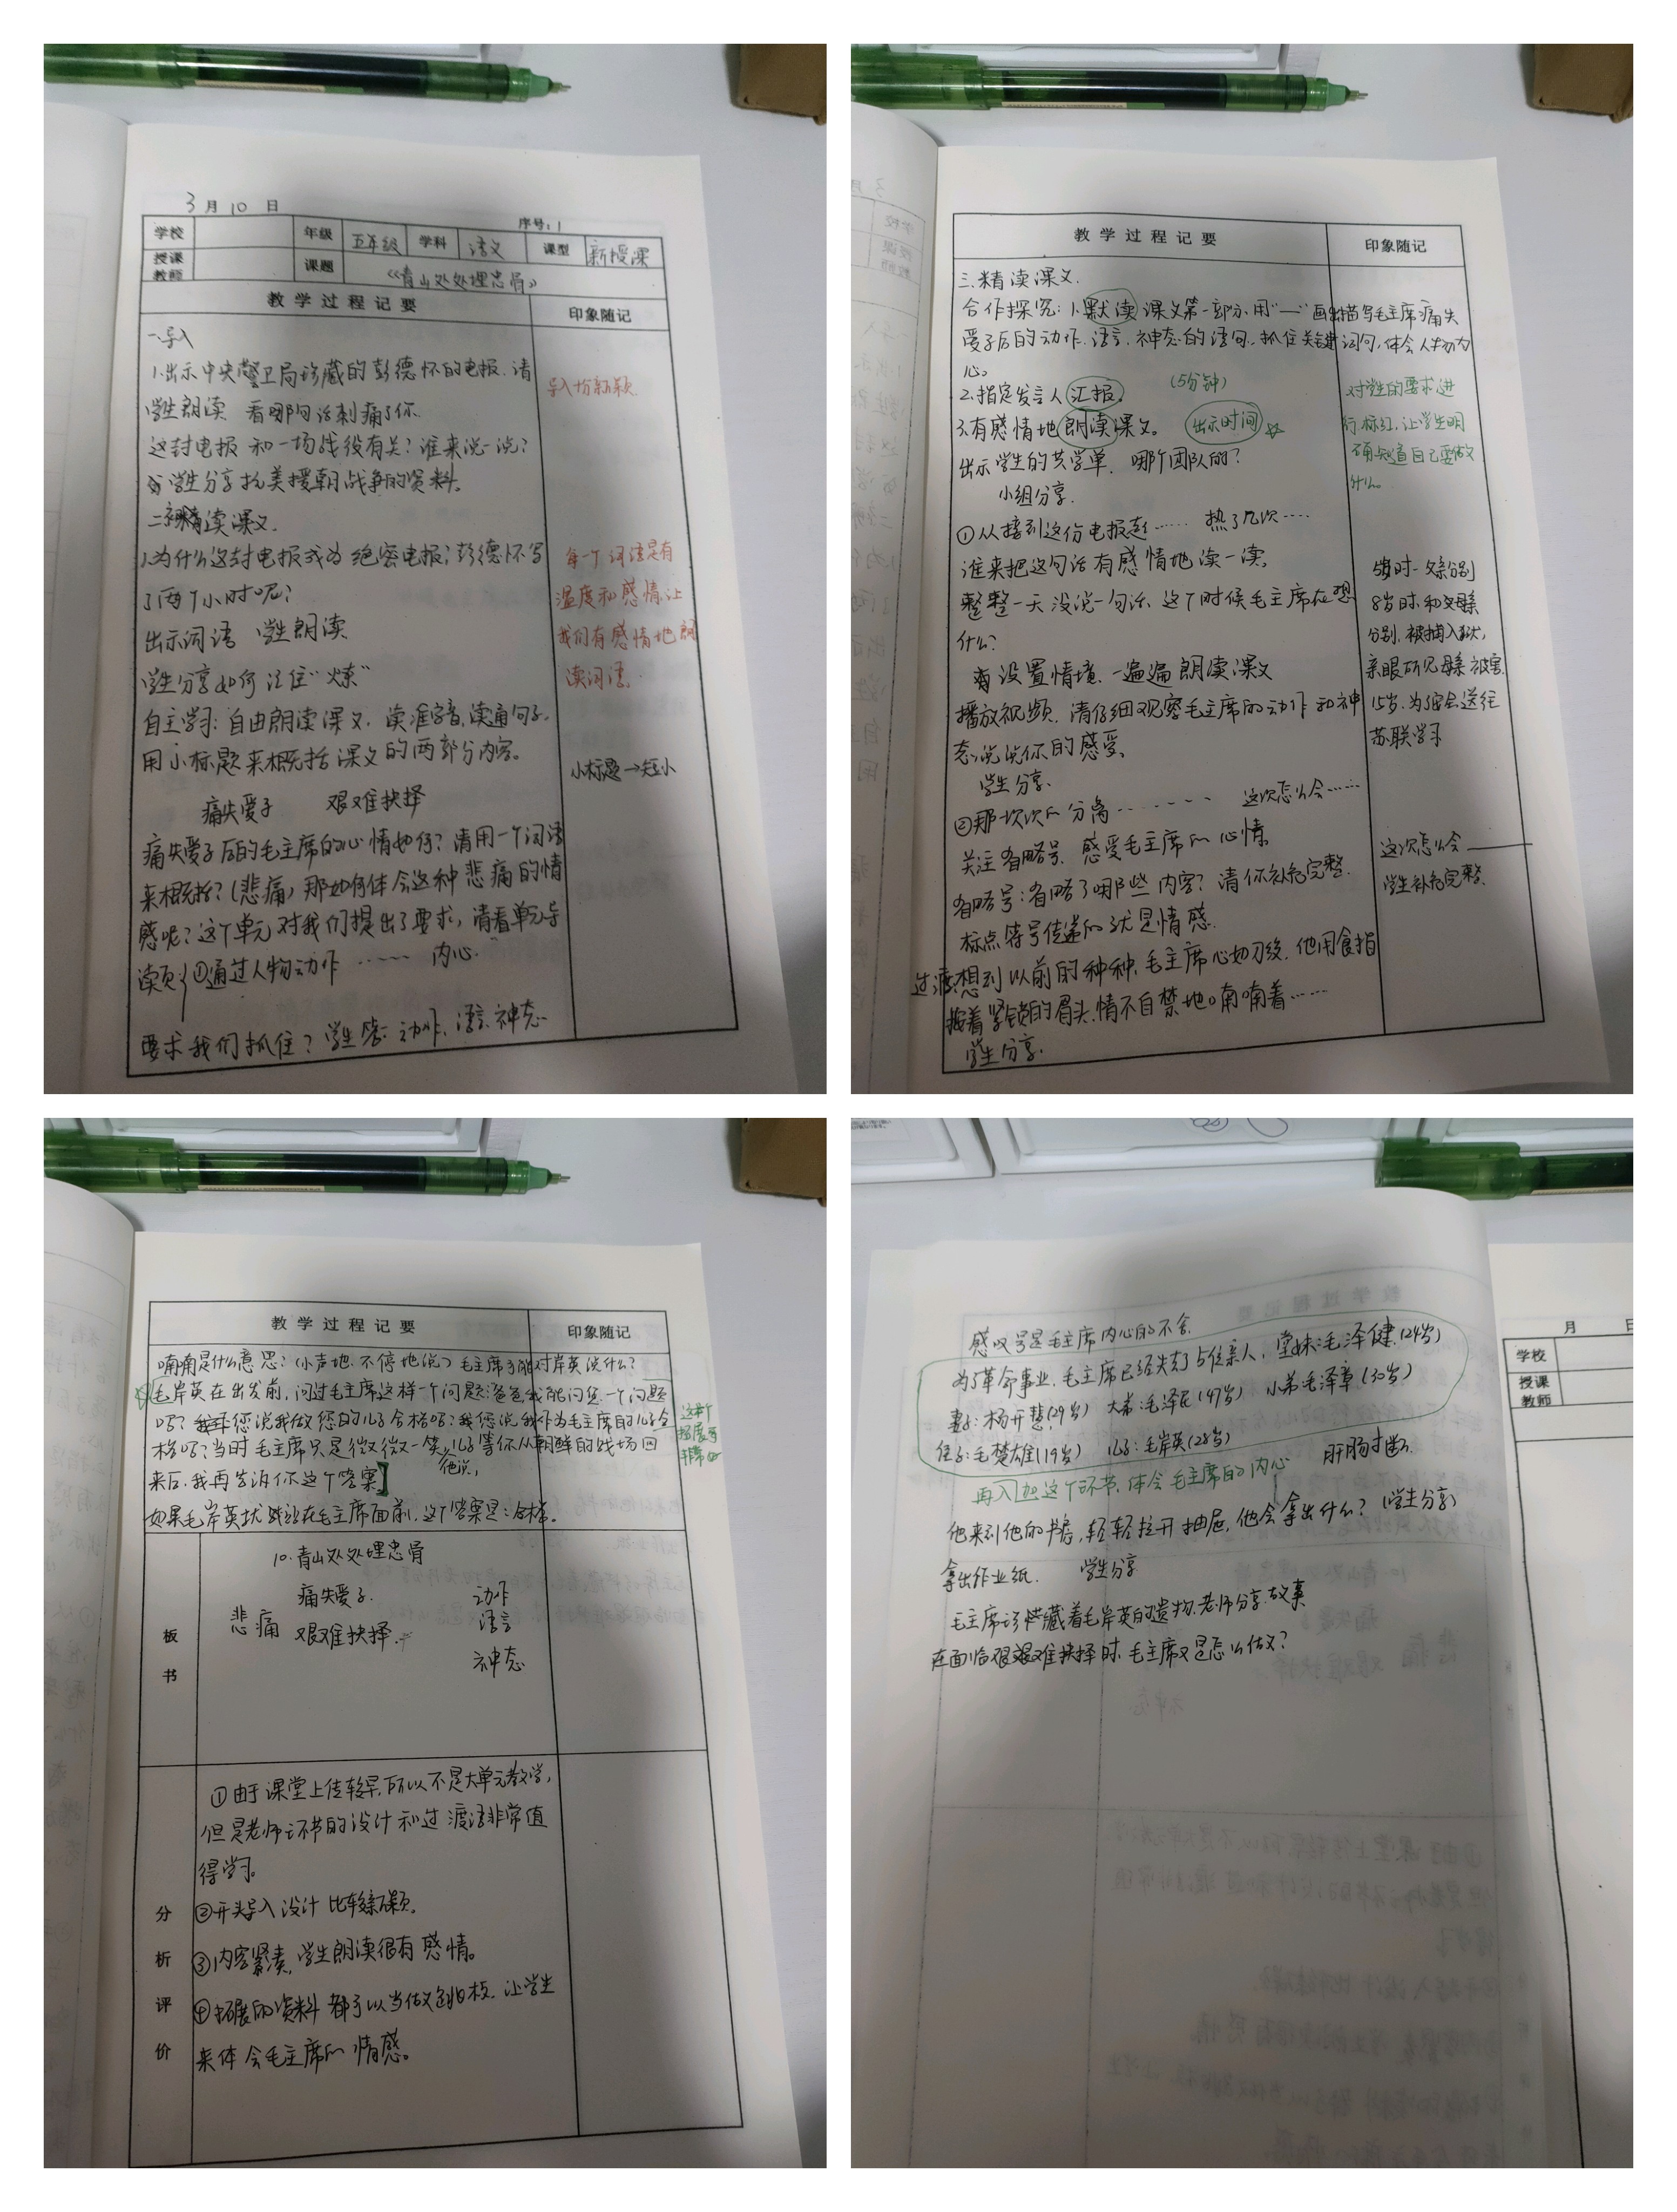 3月10日
序号:1
学校 年级 五年级 学科 语文 课型 新授课
授课教师 课题 《青山处处埋忠骨》
教学过程记要 印象随记
一.导入
1.出示中央警卫局珍藏的彭德怀的电报.请
学生朗读 看哪句话刺痛了你.
导入较新颖.
这封电报和一场战役有关?谁来说一说?
学生分享抗美援朝战争的资料.
二.初读课文.
1.为什么这封电报成为绝密电报;彭德怀写
了两个小时呢?
出示词语 学生朗读
每一个词语是有
温度和感情.让
我们有感情地朗
读词语.
学生分享如何记住"炼"
自主学习:自由朗读课文.读准字音,读通句子.
用小标题来概括课文的两部分内容。
小标题→短小
痛失爱子 艰难抉择
痛失爱子后的毛主席的心情如何?请用一个词语
来概括?(悲痛)那如何体会这种悲痛的情
感呢?这个单元对我们提出了要求,请看单元导
读页:①通过人物动作 …… 内心.
要求我们抓住?学生答:动作.语言.神态
教学过程记要 印象随记
三.精读课文.
合作探究:1.默读课文第一部分.用"—"画出描写毛主席痛失
爱子后的动作.语言.神态的语句.抓住关键词句,体会人物内
心。
2.指定发言人汇报. (5分钟)
3.有感情地朗读课文。 出示时间
对学生的要求进
行标红,让学生明
确知道自己要做
什么。
出示学生的共学单.哪个团队的?
小组分享.
①从接到这份电报起…… 热了几次……
谁来把这句话有感情地读一读.
整整一天没说一句话.这个时候毛主席在想
什么?
设置情境.一遍遍朗读课文
5岁时-父亲分别
8岁时.和父母亲
分别,被捕入狱,
亲眼所见母亲被害.
15岁.为了安全送往
苏联学习
播放视频.请仔细观察毛主席的动作和神
态.说说你的感受.
学生分享.
②那一次次的分离……… 这次怎么会……
关注省略号.感受毛主席的心情.
省略号:省略了哪些内容?请你补充完整.
这次怎么会____
学生补充完整.
标点符号传递的就是情感.
过渡:想到以前的种种,毛主席心如刀绞.他用食指
按着紧锁的眉头,情不自禁地喃喃着……
学生分享.
教学过程记要 印象随记
喃喃是什么意思?(小声地.不停地说)毛主席可能对岸英说什么?
毛岸英在出发前,问过毛主席这样一个问题:爸爸,我能问您一个问题
吗?您说我做您的儿子合格吗?您说我作为毛主席的儿子合
格吗?当时毛主席只是微微一笑,他说,儿子等你从朝鲜的战场回
来后.我再告诉你这个答案】
如果毛岸英就站在毛主席面前,这个答案是:合格.
这个
拓展可
非常好
板书
10.青山处处埋忠骨
悲痛 痛失爱子. 动作
艰难抉择. 语言
神态
分析评价
①由于课堂上传较早,所以不是大单元教学,
但是老师环节的设计和过渡语非常值
得学习。
②开头导入设计比较新颖.
③内容紧凑,学生朗读很有感情。
④拓展的资料都可以当做支架,让学生
来体会毛主席的情感。
感叹号是毛主席内心的不舍.
为了革命事业.毛主席已经失去了5位亲人,堂妹:毛泽健.(24岁)
妻子:杨开慧(29岁) 大弟:毛泽民(47岁) 小弟:毛泽覃(30岁)
侄子:毛楚雄(19岁) 儿子:毛岸英(28岁)
再入加这个环节.体会毛主席的内心 肝肠寸断.
他来到他的书房,轻轻拉开抽屉,他会拿出什么?(学生分享)
拿出作业纸. 学生分享
毛主席珍藏着毛岸英的遗物.老师分享故事
在面临艰难抉择时.毛主席又是怎么做?
月 日
学校
授课教师